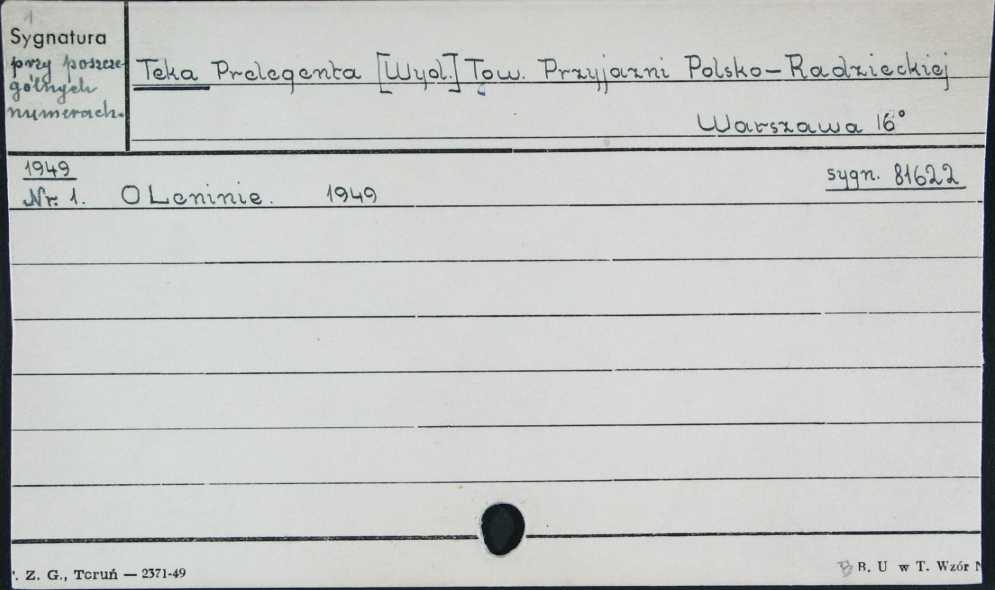 1
Sygnatura
przy poszcze-
gólnych
numerach.
Teka Prelegenta [Wyd.] Tow. Przyjazni Polsko-Radzieckiej
Warszawa 16°
1949
sygn. 81622
Nr. 1. O Leninie. 1949
. Z. G., Toruń — 2371-49
B. U w T. Wzór